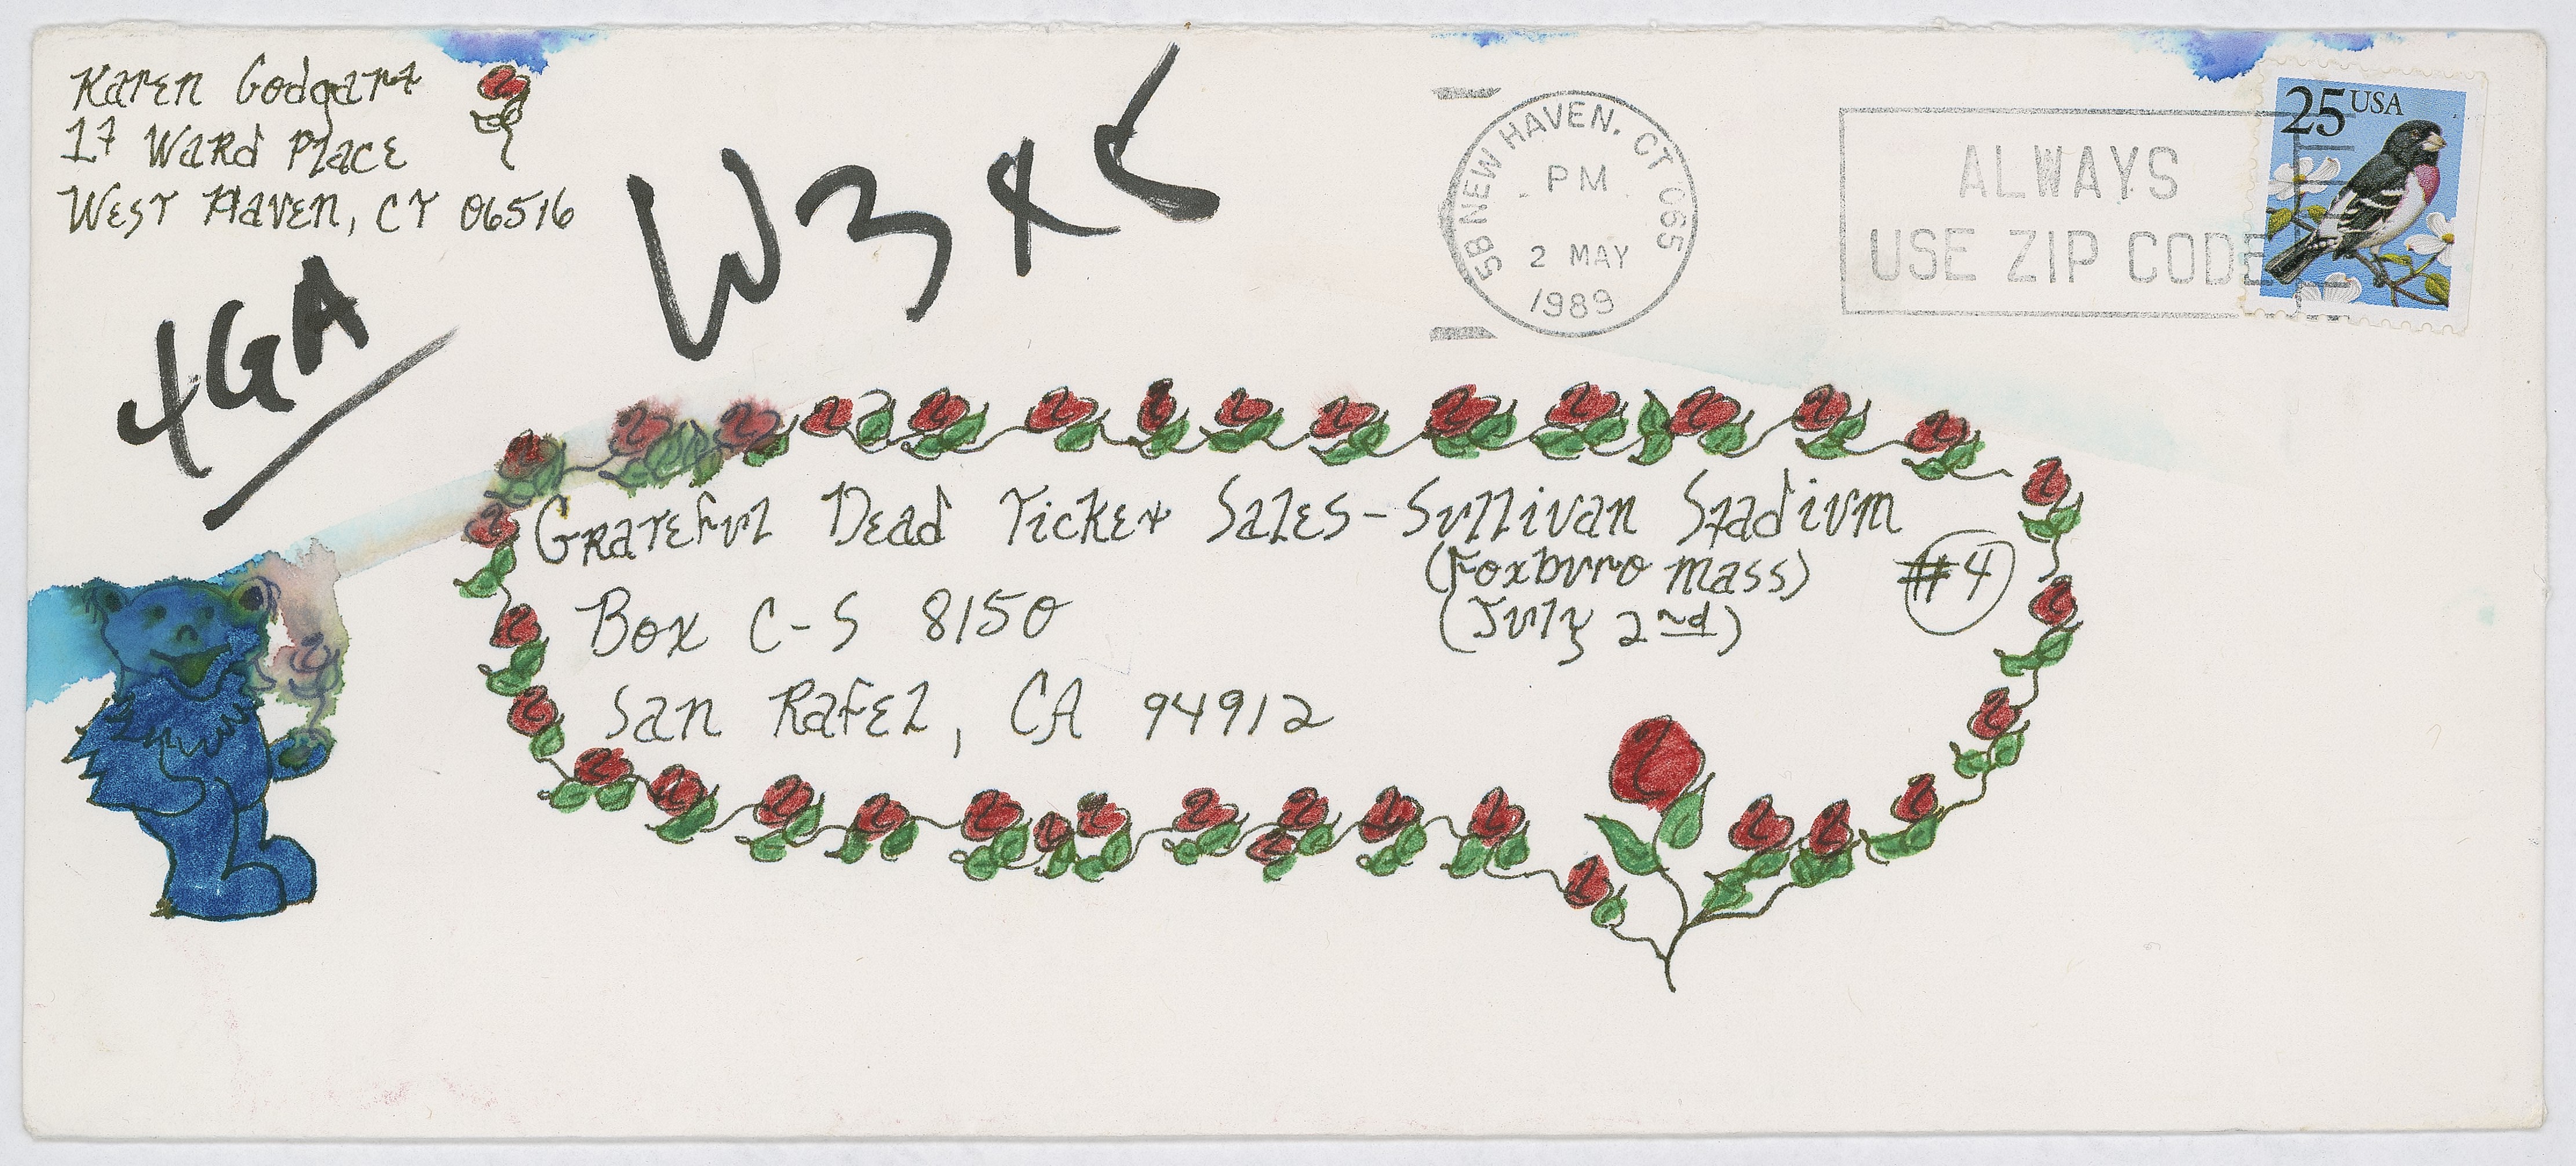 Karen Godgart
17 Ward Place
West Haven, CT 06516
4GA
W3
58 NEW HAVEN, CT 065
PM
2 MAY
1989
ALWAYS
USE ZIP CODE
25 USA
Grateful Dead Ticket Sales-Sullivan Stadium
(Foxburo Mass) #4
(July 2nd)
Box C-S 8150
San Rafel, CA 94912